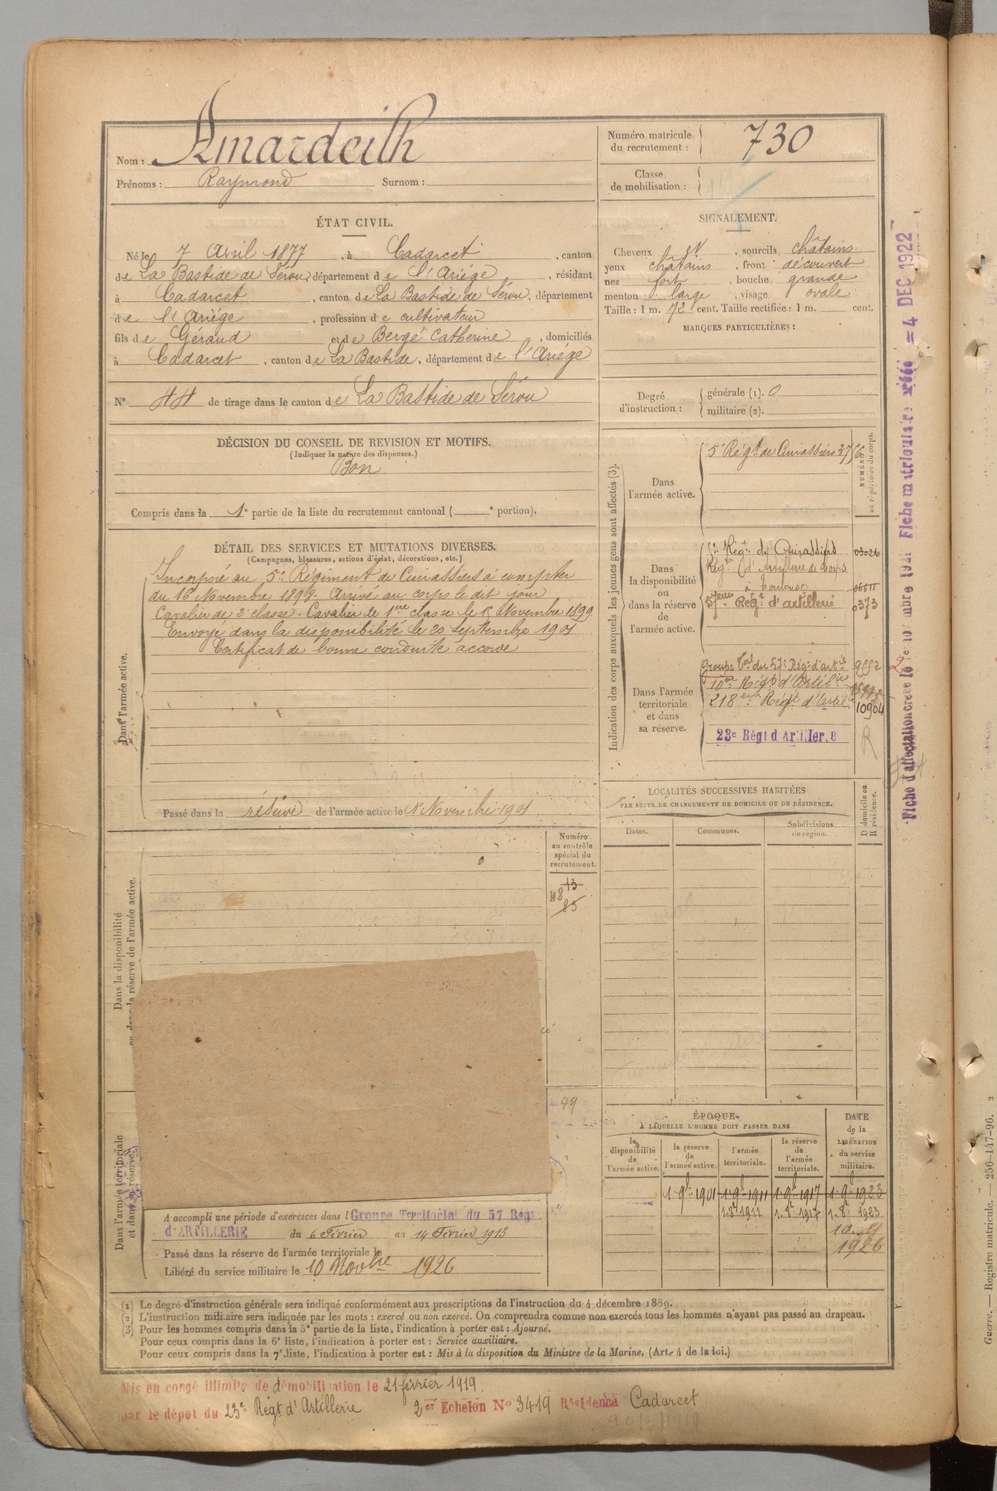 Nom : Amardeilh
Prénoms : Raymond Surnom :
Numéro matricule du recrutement : 730
Classe de mobilisation :
ÉTAT CIVIL.
Né le 7 Avril 1877, à Cadarcet, canton
de La Bastide de Sérou, département de l'Ariège, résidant
à Cadarcet, canton de La Bastide de Sérou, département
de l'Ariège, profession de cultivateur
fils de Géraud et de Bergé Catherine, domiciliés
à Cadarcet, canton de La Bastide, département de l'Ariège
N° 44 de tirage dans le canton de La Bastide de Sérou
SIGNALEMENT.
Cheveux et, sourcils châtains
yeux châtains, front découvert
nez fort, bouche grande
menton large, visage ovale
Taille : 1 m. 72 cent. Taille rectifiée : 1 m. cent.
MARQUES PARTICULIÈRES :
Degré d'instruction : générale (1). 0
militaire (2).
DÉCISION DU CONSEIL DE REVISION ET MOTIFS.
(Indiquer la nature des dispenses.)
Bon
Compris dans la 1e partie de la liste du recrutement cantonal ( e portion).
DÉTAIL DES SERVICES ET MUTATIONS DIVERSES.
(Campagnes, blessures, actions d'éclat, décorations, etc.)
Dans l'armée active.
Incorporé au 5e Régiment de Cuirassiers à compter
du 16 Novembre 1898. Arrivé au corps le dit jour
Cavalier de 2e classe. Cavalier de 1ère classe le Novembre 1899
Envoyé dans la disponibilité le 20 Septembre 1901
Certificat de bonne conduite accordé
Passé dans la réserve de l'armée active le 1er Novembre 1901
Indication des corps auxquels les jeunes gens sont affectés (3).
NUMÉRO au répertoire du corps.
Dans l'armée active.
5e Régt de Cuirassiers
Dans la disponibilité ou dans la réserve de l'armée active.
Régt de Cuirassiers
Régt d'Artillerie de Corps
à Toulouse
57ème Régt d'artillerie 0373
Dans l'armée territoriale et dans sa réserve.
Groupe Tal du 57e Régt d'artie
10e Régt d'Artillie
218ème Régt d'Artil 10904
23e Régt d'Artillerie
R
Fiche matriculaire créée = 4 DEC 1922
LOCALITÉS SUCCESSIVES HABITÉES
PAR SUITE DE CHANGEMENTS DE DOMICILE OU DE RÉSIDENCE.
Dates. Communes. Subdivisions de région. D domicile ou R résidence.
Numéro au contrôle spécial du recrutement.
13
85
49
Dans la disponibilité ou dans la réserve de l'armée active.
Dans l'armée territoriale et dans sa réserve.
A accompli une période d'exercices dans l Groupe Territorial du 57 Régt
d'ARTILLERIE du 6 Février au 14 Février 1913
Passé dans la réserve de l'armée territoriale le
Libéré du service militaire le 10 Novbre 1926
ÉPOQUE
À LAQUELLE L'HOMME DOIT PASSER DANS
la disponibilité de l'armée active. la réserve de l'armée active. l'armée territoriale. la réserve de l'armée territoriale.
DATE de la LIBÉRATION du service militaire.
1 9b 1901 1 9b 1911 1 9b 1917 1 9b 1923
1926
(1) Le degré d'instruction générale sera indiqué conformément aux prescriptions de l'instruction du 4 décembre 1889.
(2) L'instruction militaire sera indiquée par les mots : exercé ou non exercé. On comprendra comme non exercés tous les hommes n'ayant pas passé au drapeau.
(3) Pour les hommes compris dans la 5e partie de la liste, l'indication à porter est : Ajourné.
Pour ceux compris dans la 6e liste, l'indication à porter est : Service auxiliaire.
Pour ceux compris dans la 7e liste, l'indication à porter est : Mis à la disposition du Ministre de la Marine. (Art. 4 de la loi.)
Mis en congé illimité de démobilisation le 21 février 1919
par le dépôt du 23e Régt d'Artillerie 2er Echelon N° 3419 Résidence Cadarcet
Guerre. — Registre matricule. — 256-147-96.